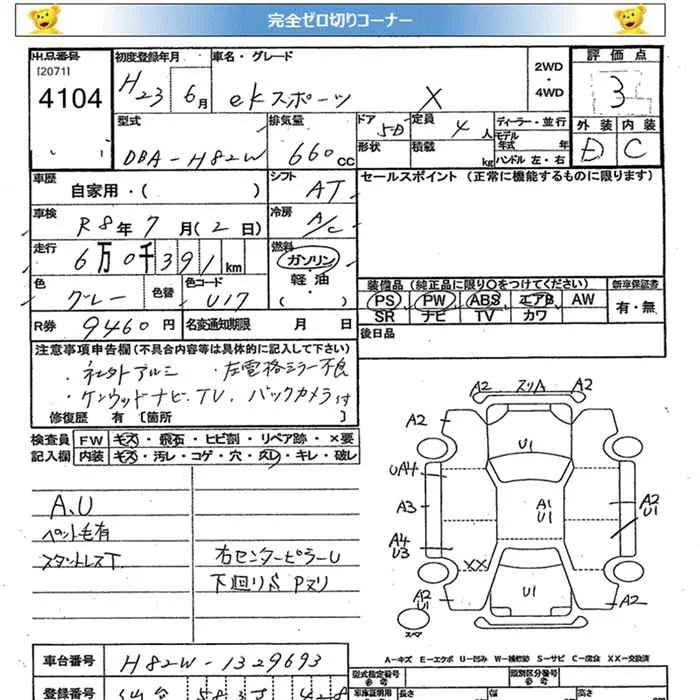 完全ゼロ切りコーナー
出品番号
[2071]
4104
初度登録年月
H23 6月
車名・グレード
eKスポーツ X
2WD
・
4WD
評価点
3
外装 内装
D C
型式
DBA-H82W
排気量
660cc
ドア
5D
定員
4人
ディーラー・並行
モデル年式 年
形状
積載
kg
ハンドル 左・右
車歴
自家用・( )
シフト
AT
セールスポイント(正常に機能するものに限ります)
車検
R8年7月(2日)
冷房
A/C
走行
6万0千391km
燃料
ガソリン
・
軽油
( )
色
グレー
色替
色コード
U17
装備品(純正品に限り○をつけてください)
新車保証書
PS PW ABS エアB AW
有・無
SR ナビ TV カワ
R券 9460円
名変通知期限 月 日
後日品
注意事項申告欄(不具合内容等は具体的に記入して下さい)
・社外アルミ ・左電格ミラー不良
・ケンウッドナビ、TV、バックカメラ付
修復歴 有 〔箇所 〕
検査員 FW キズ・飛石・ヒビ割・リペア跡・×要
記入欄 内装 キズ・汚レ・コゲ・穴・スレ・キレ・破レ
A、U
ペット毛有
スタットレスT
右センターピラーU
下回りS Pヌリ
A2 スリA A2
A2
U1
UA4
A3
A1
U1
A2
U1
A4
U3
XX
U1
A2
U1
A2
スペア
A-キズ E-エクボ U-凹み W-補修跡 S-サビ C-腐食 XX-交換済
車台番号
H82W-1329693
登録番号
仙台 583
型式指定番号
類別区分番号
参考
車庫証明用
長さ
幅
高さ